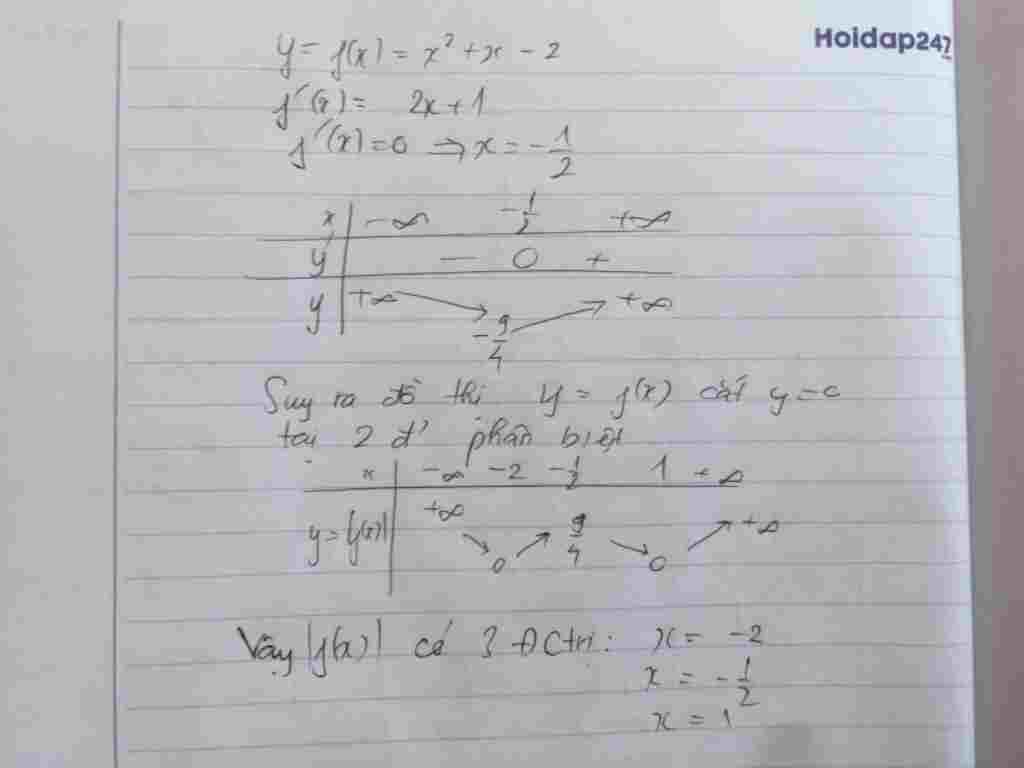 Hoidap247
y = f(x) = x² + x - 2
f'(x) = 2x + 1
f'(x) = 0 => x = -1/2
x | -∞ -1/2 +∞
y' | - 0 +
y | +∞ -9/4 +∞
Suy ra đồ thị y = f(x) cắt y = 0
tại 2 đ' phân biệt
x | -∞ -2 -1/2 1 +∞
y = |f(x)| | +∞ 0 9/4 0 +∞
Vậy |f(x)| có 3 ĐCtrị: x = -2
x = -1/2
x = 1